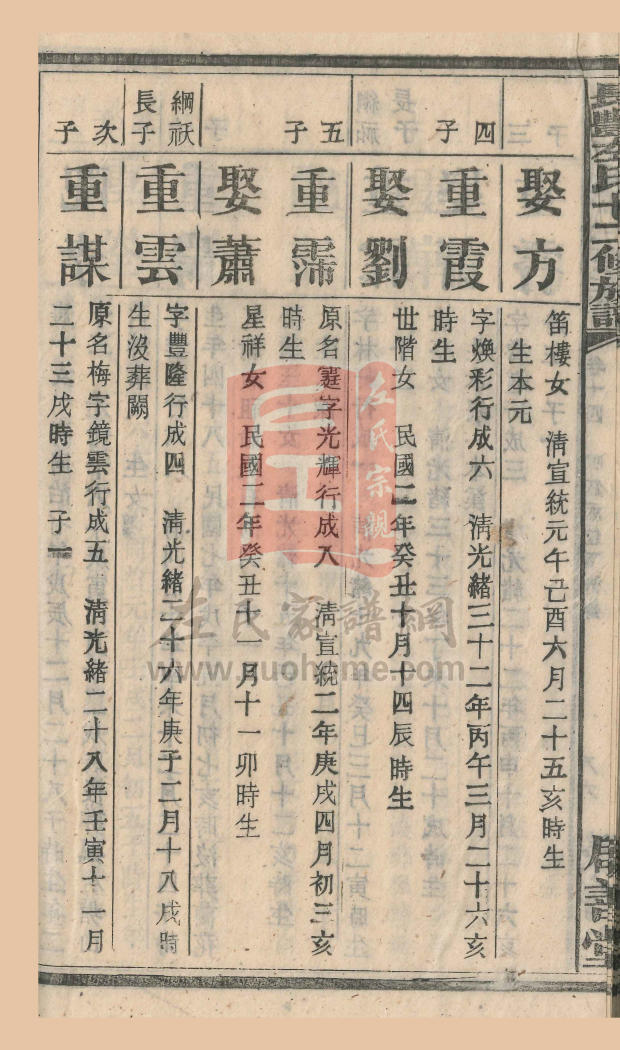 娶方
笛樓女　清宣統元年己酉六月二十五亥時生
生本元
四子
重霞
字煥彩行成六　清光緒三十二年丙午三月二十六亥
時生
娶劉
世階女　民國二年癸丑十月十四辰時生
五子
重霈
原名霆字光輝行成八　清宣統二年庚戌四月初三亥
時生
娶蕭
星祥女　民國二年癸丑十一月十一卯時生
綱祆長子
重雲
字豐隆行成四　清光緒二十六年庚子二月十八戌時
生沒葬闕
次子
重謀
原名梅字鏡雲行成五　清光緒二十八年壬寅十一月
二十三戌時生　子一
左氏宗親
左氏家譜網
www.zuohome.com